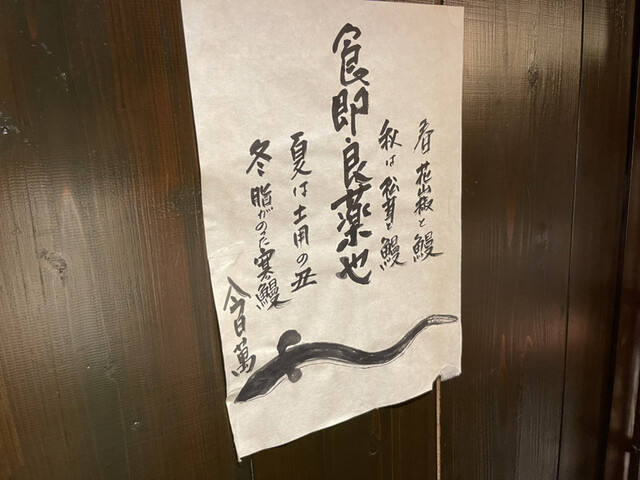 春 花山椒と鰻
秋は松茸と鰻
食即良薬也
夏は土用の丑
冬脂がのった寒鰻